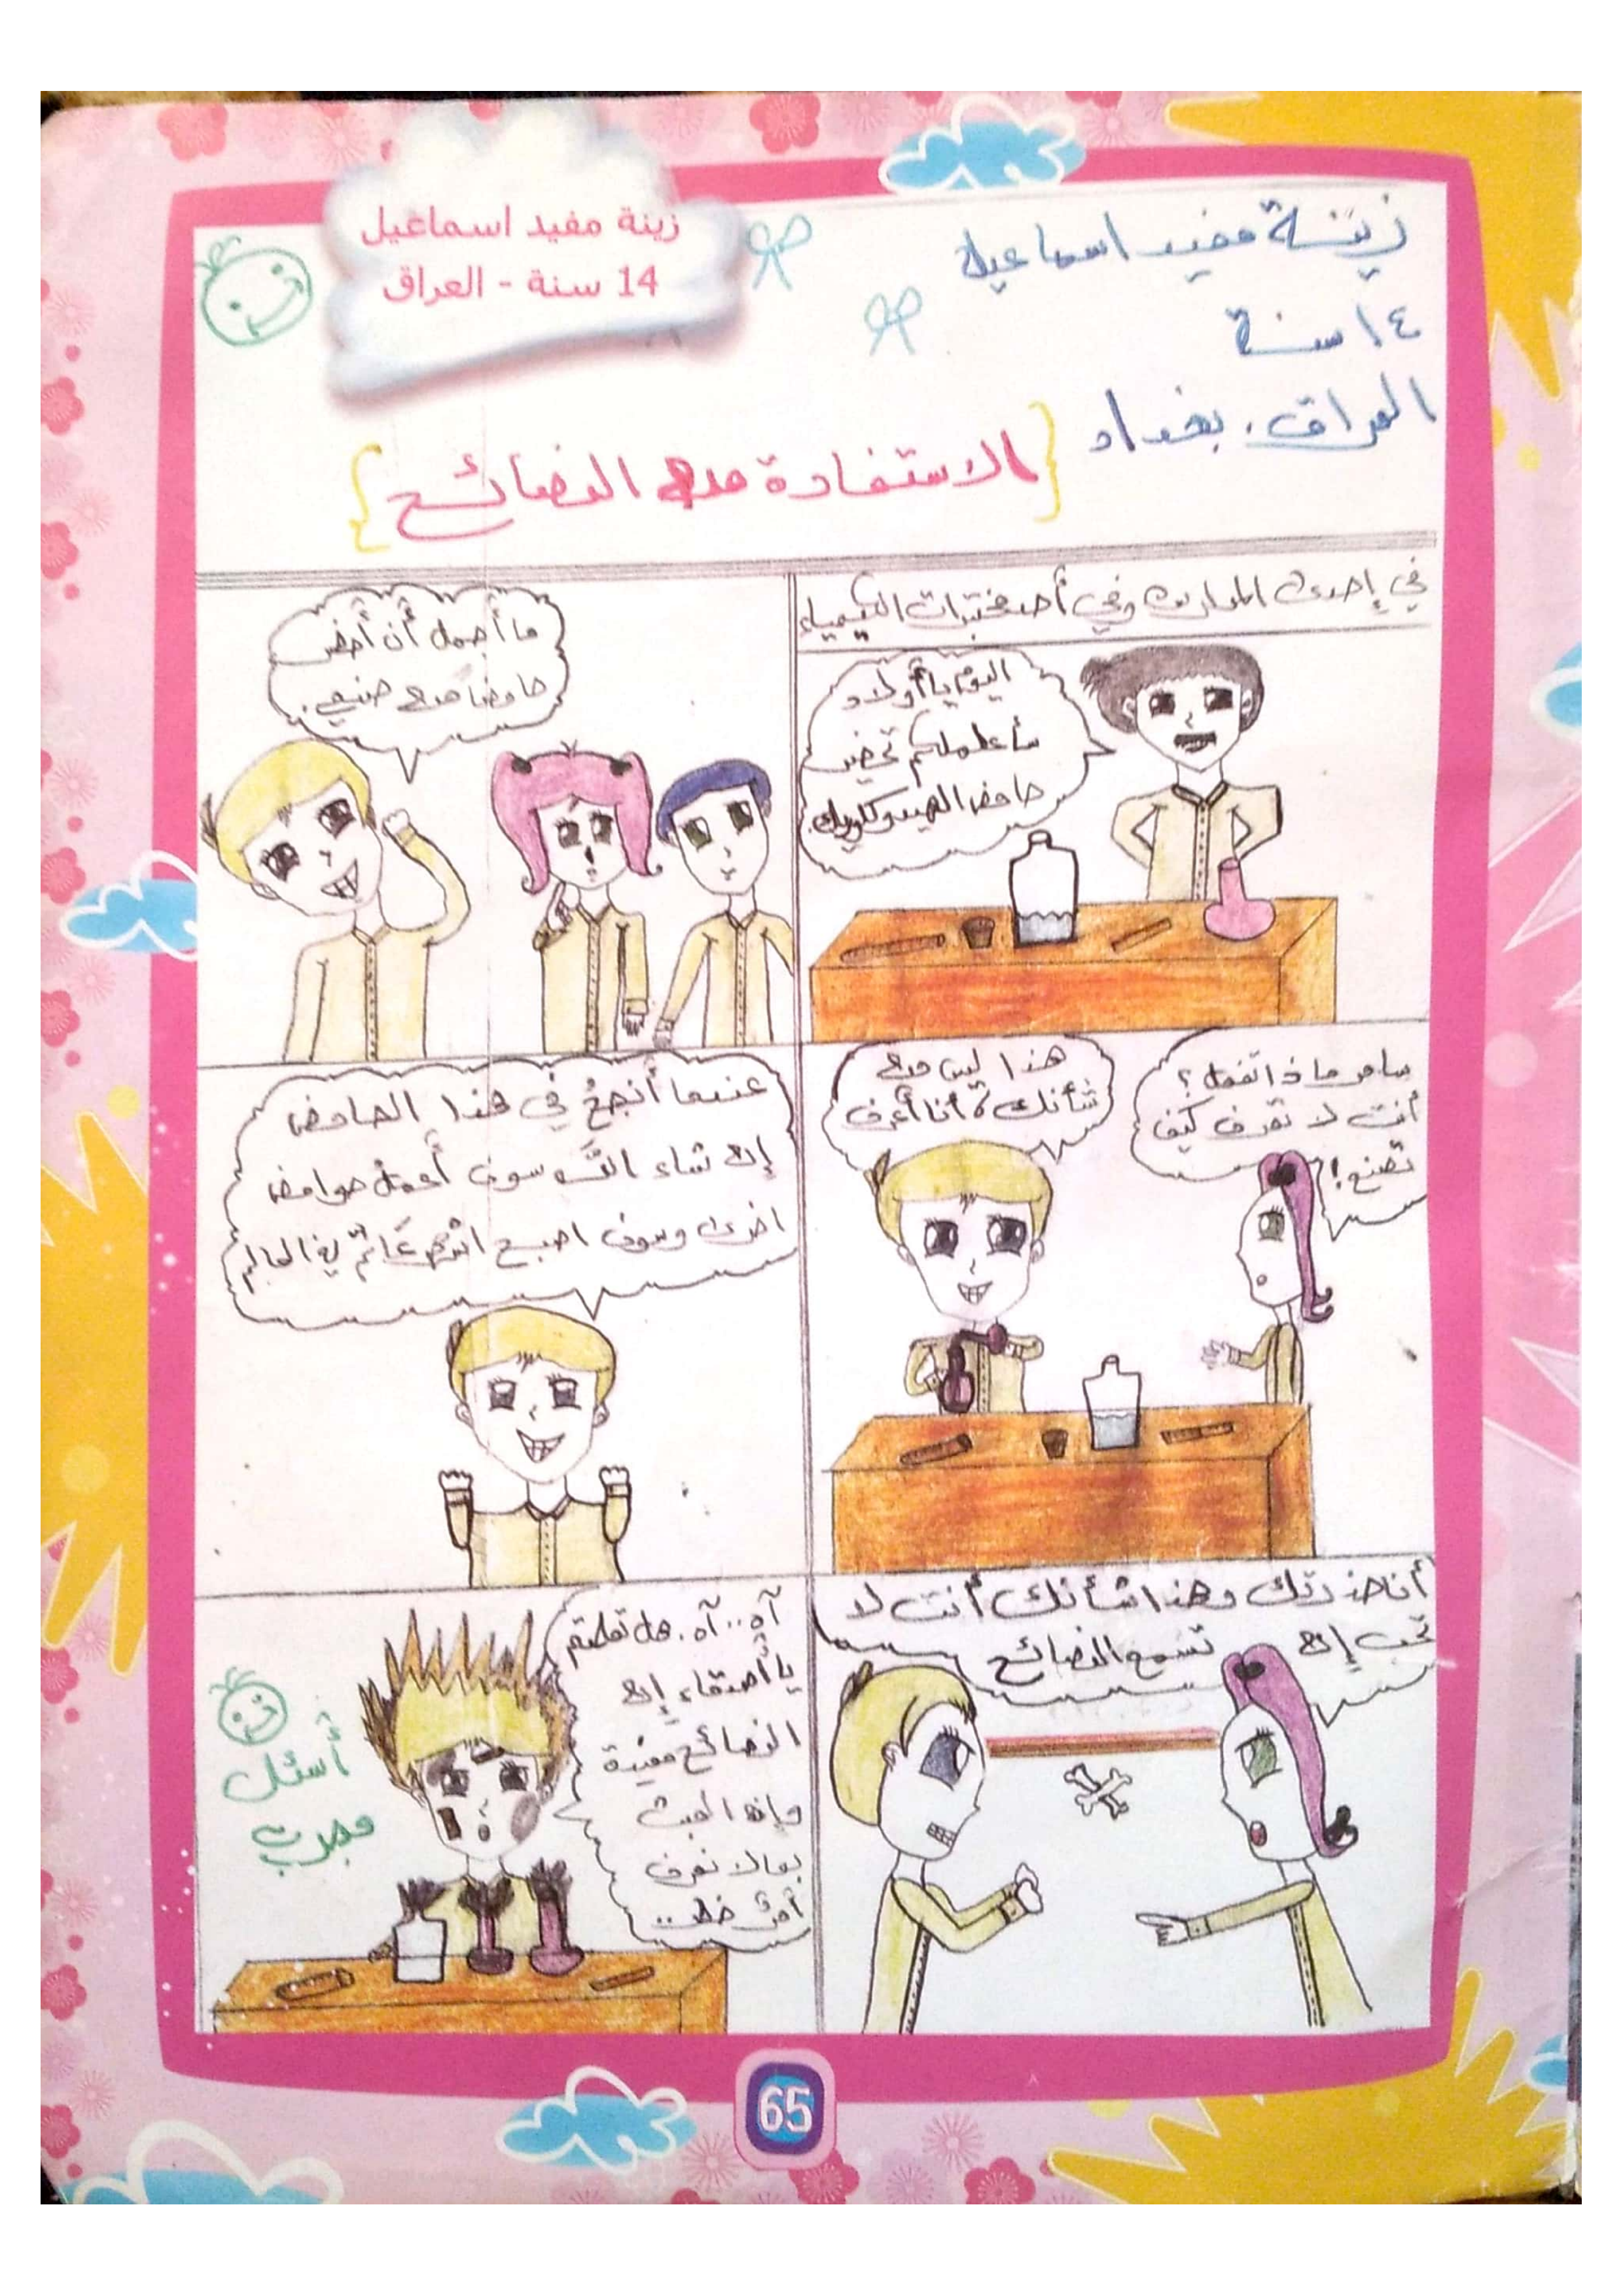 زينة مفيد اسماعيل
14 سنة - العراق
زينة مفيد اسماعيل
١٤ سنة
العراق . بغداد
{الاستفادة من النصائح}
في إحدى المدارس وفي أحد مختبرات الكيمياء
اليوم يا أولاد
سأعلملكم تحضير
حامض الهيدروكلوريك
ما أجمل أن أحضر
حامضا من صنعي .
سامر ماذا تفعل ؟
أنت لا تعرف كيف
تصنع !
هذا ليس من
شأنك ، أنا أعرف
عندما أنجح في هذا الحامض
إن شاء الله سوف أعمل حوامض
اخرى وسوف اصبح اشهر عالم في العالم
أنا حذرتك وهذا شأنك أنت لا
تحب إن تسمع النصائح
آه .. آه . هل تعلمتم
يا أصدقاء إن
النصائح مفيدة
وإن العبث
بما لا نعرف
أمر خطر ..
أسئل
مجرب
65